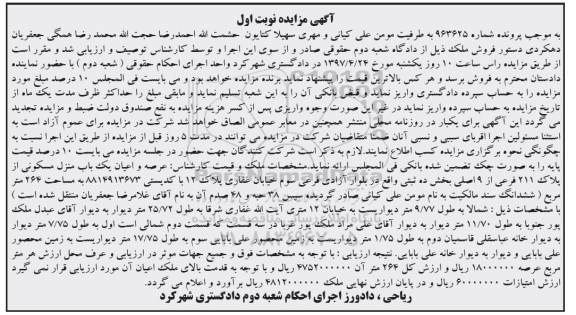 آگهی مزایده نوبت اول
به موجب پرونده شماره ۹۶۳۶۲۵ به طرفیت مومن علی کیانی و مهری سهیلا کتایون حشمت الله احمدرضا حجت الله محمد رضا همگی جعفریان
دهکردی دستور فروش ملک ذیل از دادگاه شعبه دوم حقوقی صادر و از سوی این اجرا و توسط کارشناس توصیف و ارزیابی شد و مقرر است
از طریق مزایده راس ساعت ۱۰ روز یکشنبه مورخ ۱۳۹۷/۶/۲۴ در دادگستری شهرکرد واحد اجرای احکام حقوقی ( شعبه دوم ) با حضور نماینده
دادستان محترم به فروش برسد و هر کس بالاترین قیمت را پیشنهاد نماید برنده مزایده خواهد بود و می بایست فی المجلس ۱۰ درصد مبلغ مورد
مزایده را به حساب سپرده دادگستری واریز نماید و فیش بانکی آن را به این شعبه تسلیم نماید . مابقی مبلغ را حداکثر ظرف مدت یک ماه از
تاریخ مزایده به حساب سپرده واریز نماید در غیر این صورت وجوه واریزی پس از کسر هزینه مزایده به نفع صندوق دولت ضبط و مزایده تجدید
می گردد این آگهی برای یکبار در روزنامه محلی منتشر همچنین در معابر عمومی الصاق خواهد شد شرکت در مزایده برای عموم آزاد است به
استثنا مسئولین اجرا اقربای سببی و نسبی آنان ضمنا متقاضیان شرکت در مزایده می توانند در مدت ۵ روز قبل از مزایده از طریق این اجرا نسبت به
چگونگی نحوه برگزاری مزایده کسب اطلاع نمایند.لازم به ذکر است شرکت کنندگان جهت حضور در جلسه مزایده می بایست ۱۰ درصد قیمت
پایه را به صورت چک تضمین شده بانکی فی المجلس ارائه نمایند.مشخصات ملک و قیمت کارشناس: عرصه و اعیان یک باب منزل مسکونی از
پلاک ۲۱۱ فرعی از ۹ اصلی بخش ده ثبتی واقع در بلوار آزادگان فرعی سوم خیابان غفاری پلاک ۱۲ با کدپستی ۸۸۱۴۹۱۳۶۷۳ به مساحت ۲۶۴ متر
مربع ( ششدانگ سند مالکیت به نام مومن علی کیانی صادر گردیده سپس ۳۸ حبه و ۴۰ صدم آن به نام آقای غلامرضا جعفریان منتقل شده است )
با مشخصات ذیل : شمالا به طول ۹/۷۷ متر دیواریست به خیابان ۱۲ متری آیت الله غفاری شرقا به طول ۲۵/۷۲ متر دیوار به دیوار آقای عبدل ملک
پور جنوبا به طول ۱۱/۷۰ متر دیوار به دیوار آقای علی مراد ملک پور غربا در سه قسمت که قسمت دوم شمالی است اول به طول ۷/۷۵ متر دیوار
به دیوار خانه عباسقلی قاسمیان دوم به طول ۱/۷۵ متر دیواریست به زمین محصور علی بابایی سوم به طول ۱۷/۷۵ متر دیواریست به زمین محصور
علی بابایی و دیوار به دیوار خانه علی بابایی. نتیجه ارزیابی : با توجه به مشخصات فوق و جمیع جهات موثر در ارزیابی و عرف محل ارزش هر متر
مربع عرصه ۱۸۰۰۰۰۰۰ ریال و ارزش کل ۲۶۴ متر آن ۴۷۵۲۰۰۰۰۰۰ ریال و با توجه به قدمت بالای ملک اعیان آن مورد ارزیابی قرار نمی گیرد
ارزش امتیازات ۶۰۰۰۰۰۰۰ ریال و در پایان ارزش نهایی ملک ۴۸۱۲۰۰۰۰۰۰ ریال برآورد و اعلام می گردد.
ریاحی ، دادورز اجرای احکام شعبه دوم دادگستری شهرکرد